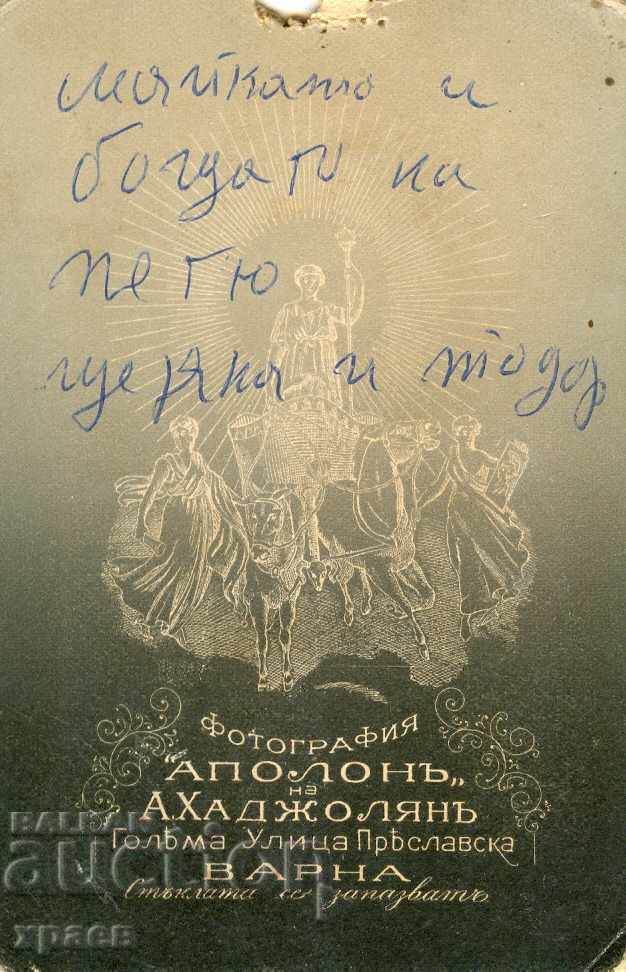 майката и
на
пегю
и тодор
ФОТОГРАФИЯ
"АПОЛОНЪ„
на
А.ХАДЖОЛЯНЪ
Голѣма Улица Прѣславска
ВАРНА
Стъклата се запазватъ
BALKAN
auction
храев